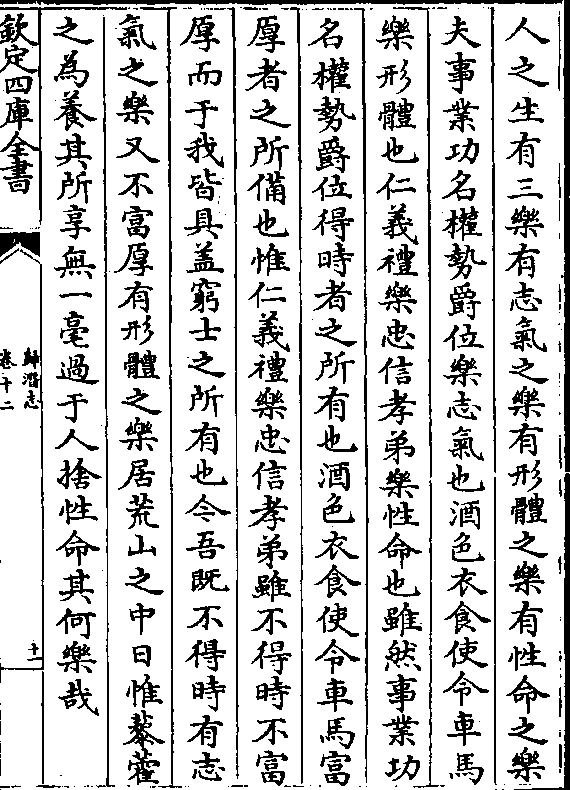 人之生有三樂有志氣之樂有形體之樂有性命之樂
夫事業功名權勢爵位樂志氣也酒色衣食使令車馬
樂形體也仁義禮樂忠信孝弟樂性命也雖然事業功
名權勢爵位得時者之所有也酒色衣食使令車馬富
厚者之所備也惟仁義禮樂忠信孝弟雖不得時不富
厚而于我皆具盖窮士之所有也今吾既不得時有志
氣之樂又不富厚有形體之樂居荒山之中日惟藜藿
之為養其所享無一毫過于人捨性命其何樂哉
欽定四庫全書
歸潛志
卷十二
十一